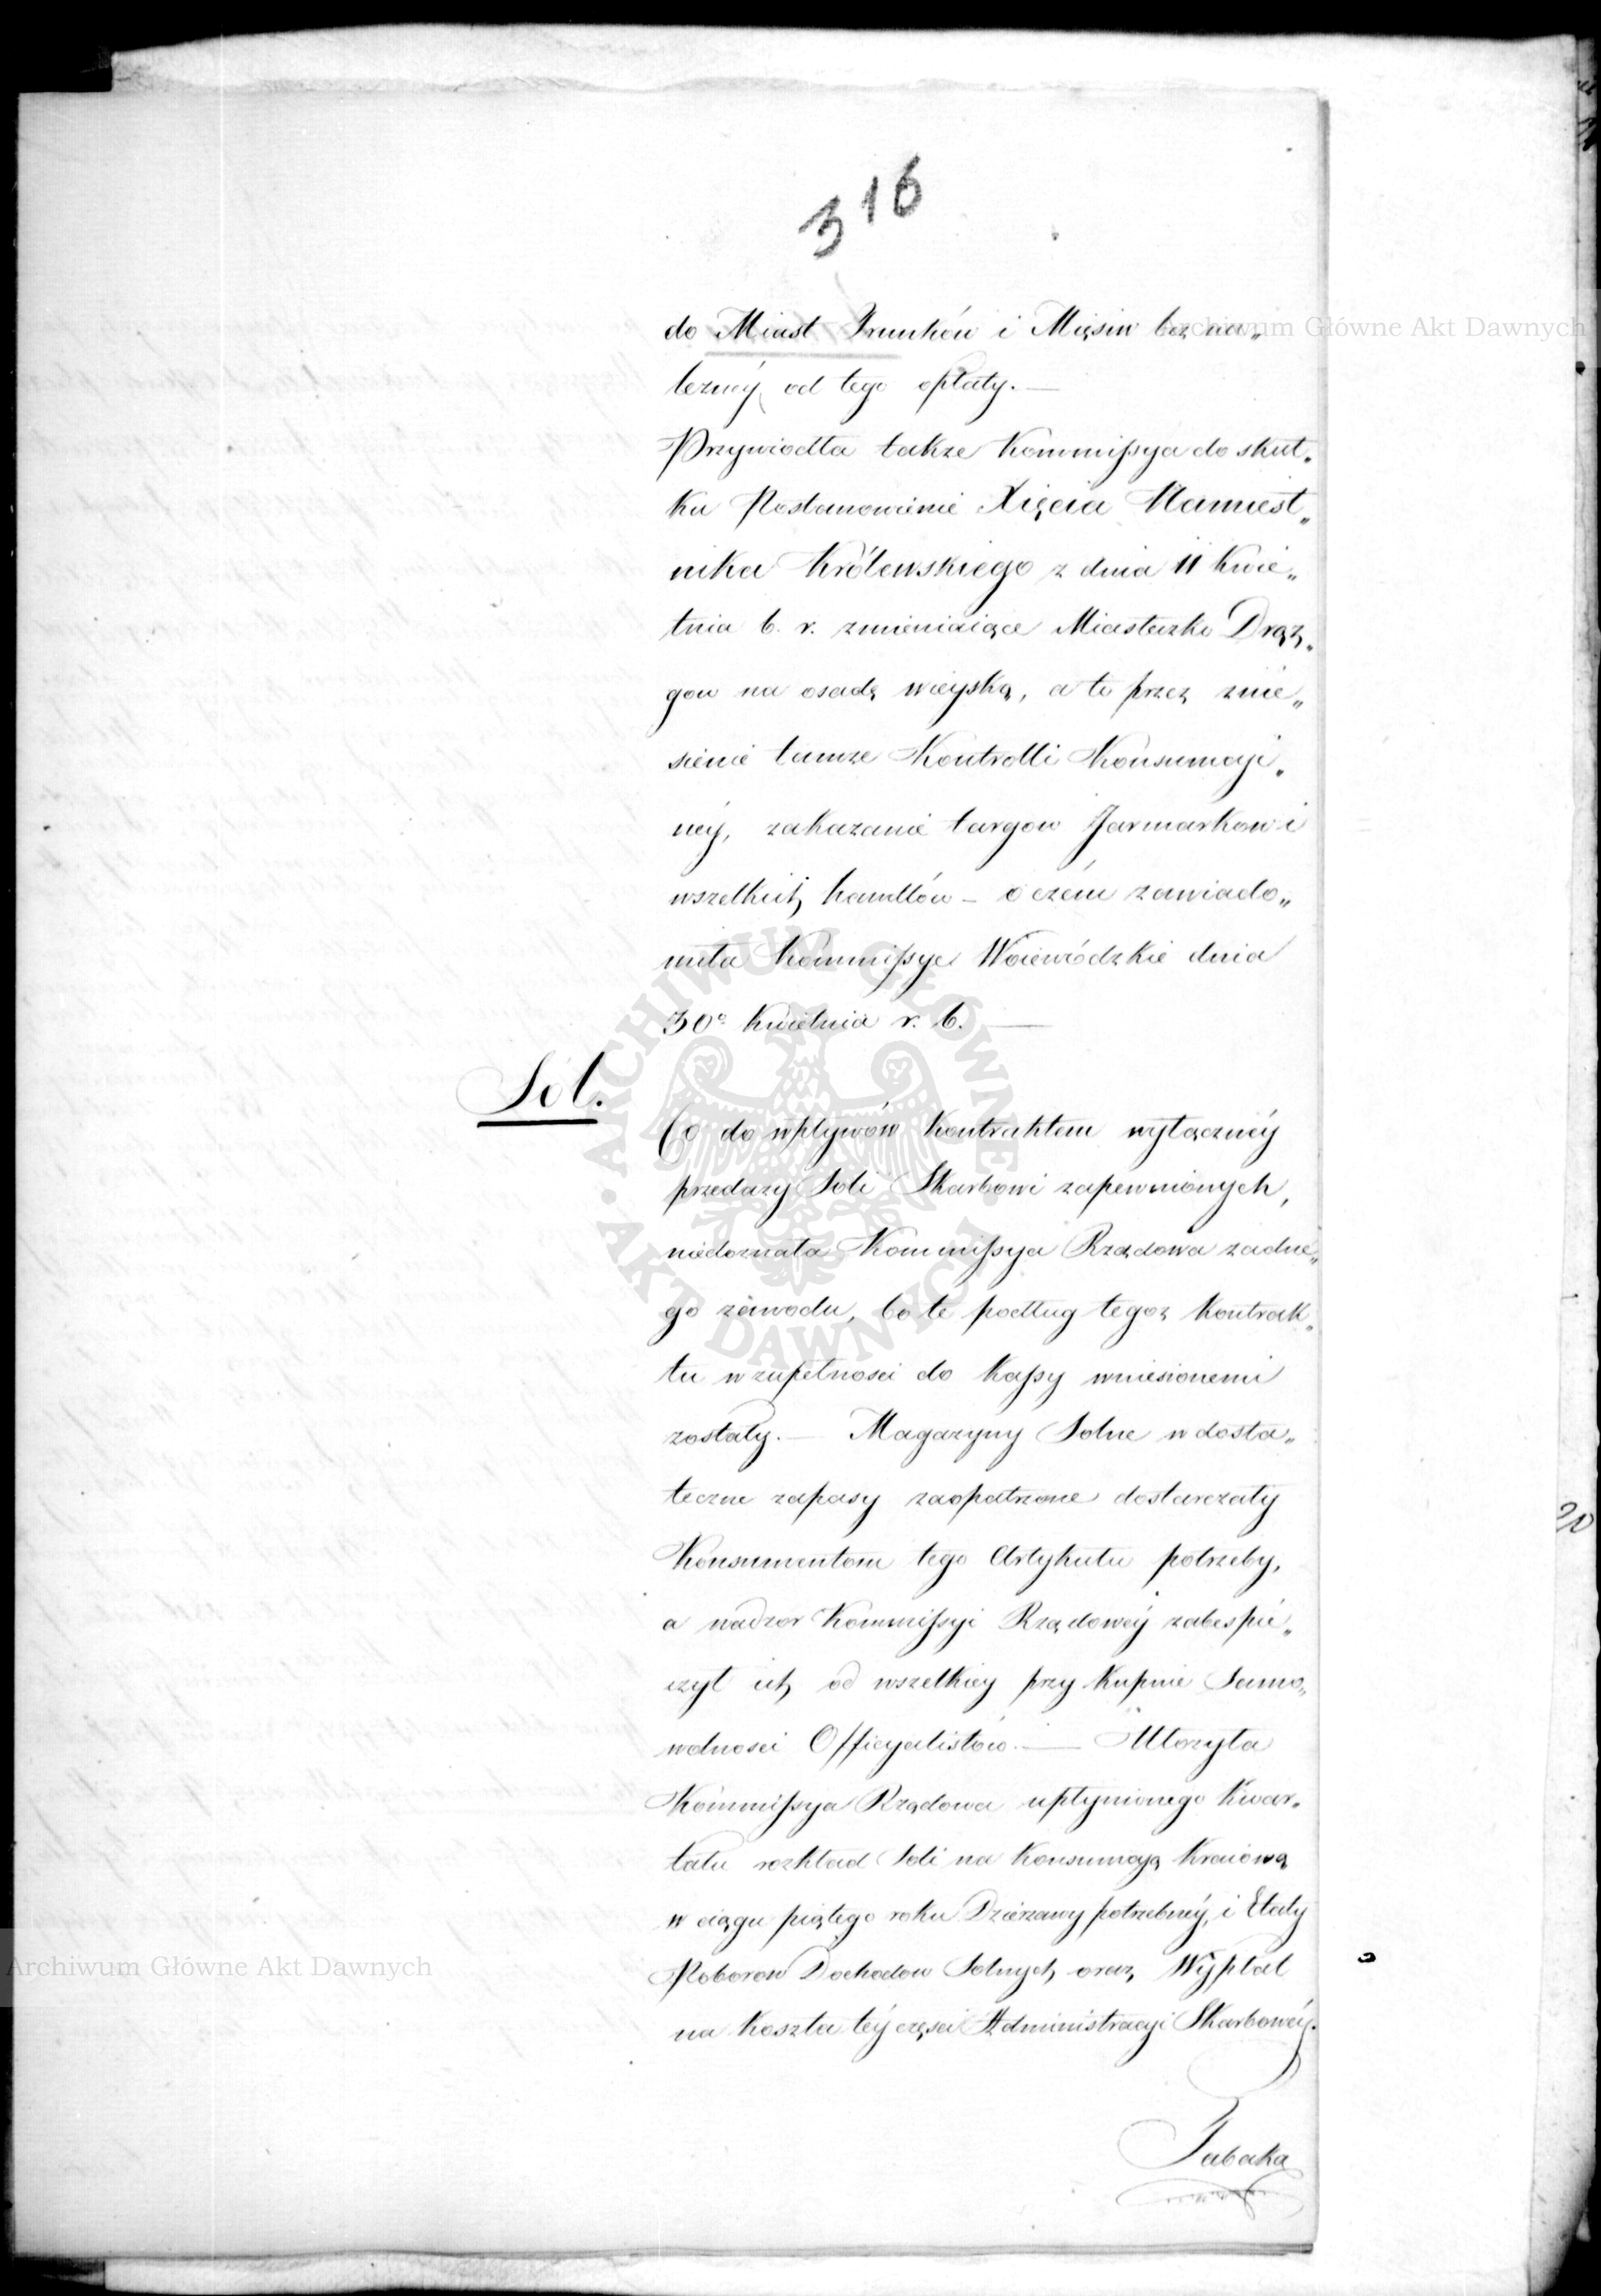 316
do Miast Trunków i Mięsiw bez na„
leznéy od tego opłaty. —
Przywiodła także Kommissya do skut„
ku Postanowienie Xięcia Namiest„
nika Królewskiego z dnia 11 Kwie„
tnia b. r. zmieniaiące Miasteczko Drąz„
gow na osadę wieyską, a to przez znie„
sienie tamże Kontrolli Konsumcyi„
néy, zakazanie targow Jarmarkow i
wszelkich handlów – o czém zawiado„
miła Kommissye Woiewódzkie dnia
30º Kwietnia r. b. —
Sól.
Co do wpływów kontraktem wyłącznéy
przedaży Soli Skarbowi zapewnionych,
niedoznała Kommissya Rządowa żadne„
go zawodu, bo te podług tegoż Kontrak„
tu w zupełnosci do Kassy wniesionemi
zostały. — Magazyny Solne w dosta„
teczne zapasy zaopatrzone dostarczały
Konsumentom tego Artykułu potrzeby,
a nadzor Kommissyi Rządowéy zabespie„
czył ich od wszelkiey przy kupnie Samo„
wolnosci Officyalistów. — Ułożyła
Kommissya Rządowa upłynionego Kwar„
tału rozkład Soli na Konsumcyą Kraiową
w ciągu piątego roku Dzierżawy potrzebnéy, i Etaty
Poborow Dochodow Solnych, oraz Wypłat
na koszta téy częsci Administracyi Skarbowéy.
Tabaka
Archiwum Główne Akt Dawnych
Archiwum Główne Akt Dawnych
ARCHIWUM GŁÓWNE AKT DAWNYCH
20